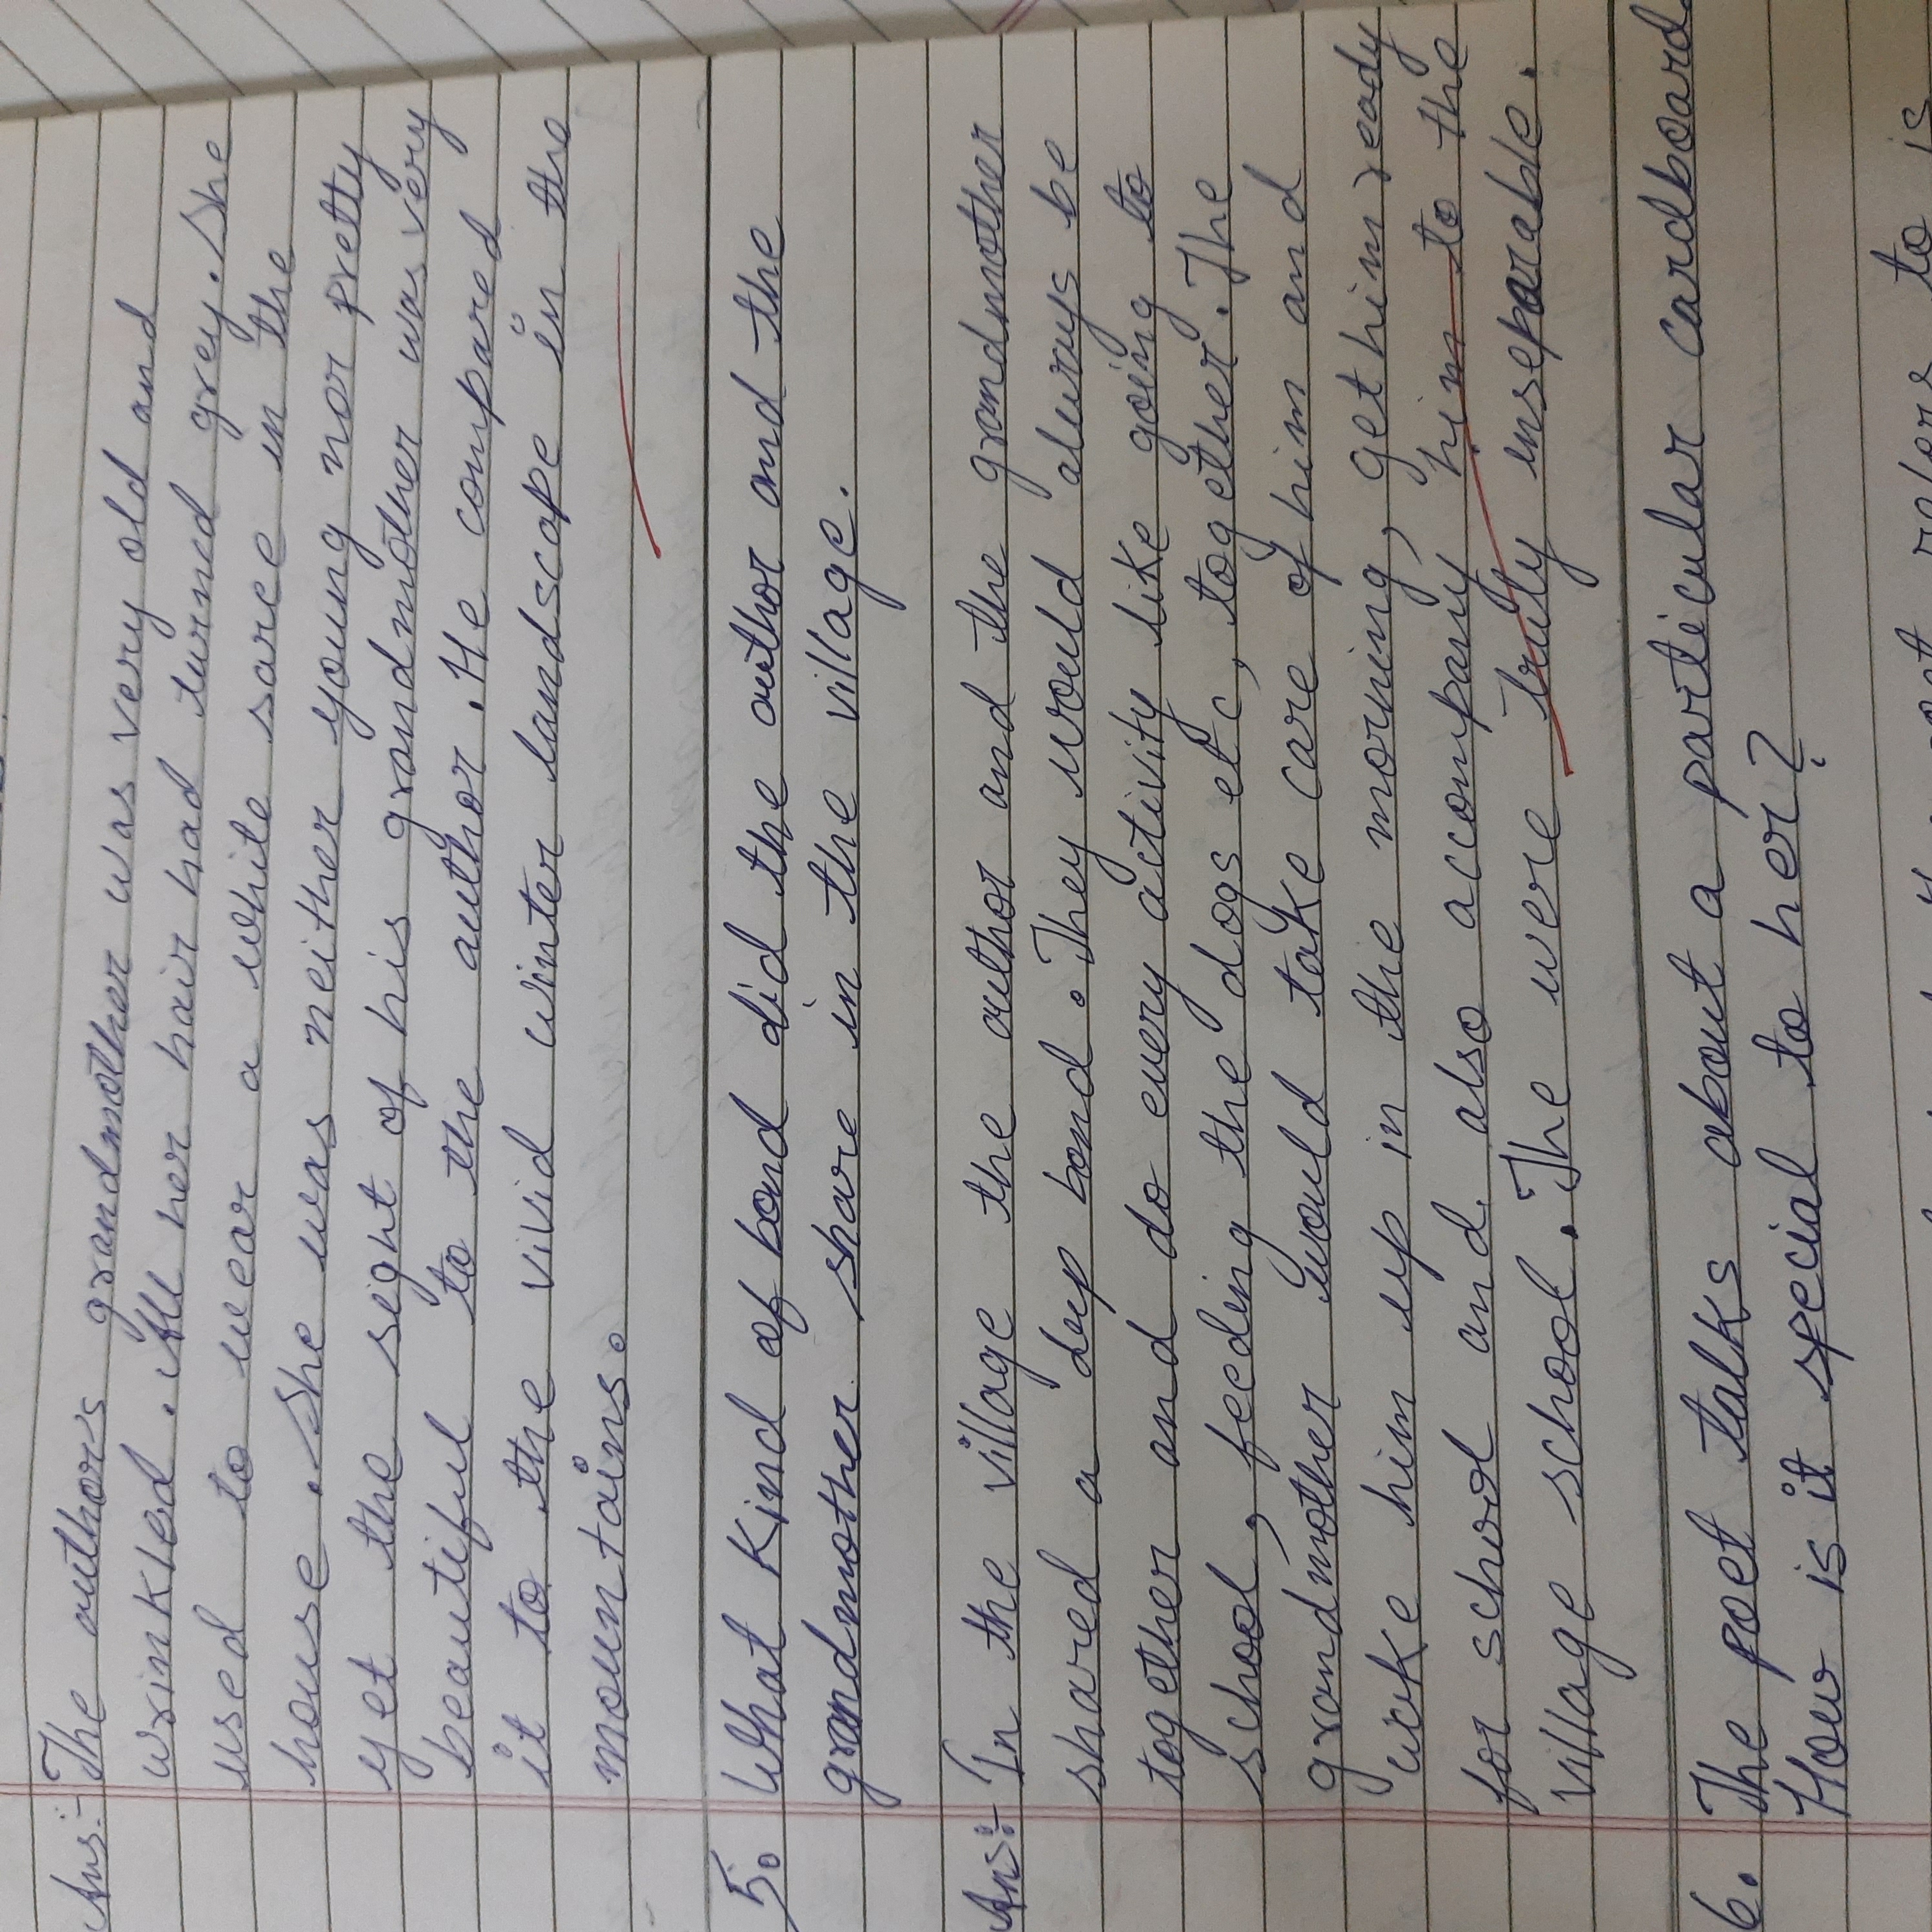 Ans:- The authors grandmother was very old and
wrinkled. All her hair had turned grey. She
used to wear a white saree in the
house. She was neither young nor pretty
yet the sight of his grandmother was very
beautiful to the author. He compared
it to the vivid winter landscape in the
mountains.
5. What kind of bond did the author and the
grandmother share in the village.
Ans:- In the village the author and the grandmother
shared a deep bond. They would always be
together and do every activity like going to
school, feeding the dogs etc, together. The
grandmother would take care of him and
wake him up in the morning, get him ready
for school and also accompany him to the
village school. The were truly inseparable.
6. The poet talks about a particular cardboard.
How is it special to her?
refers to is